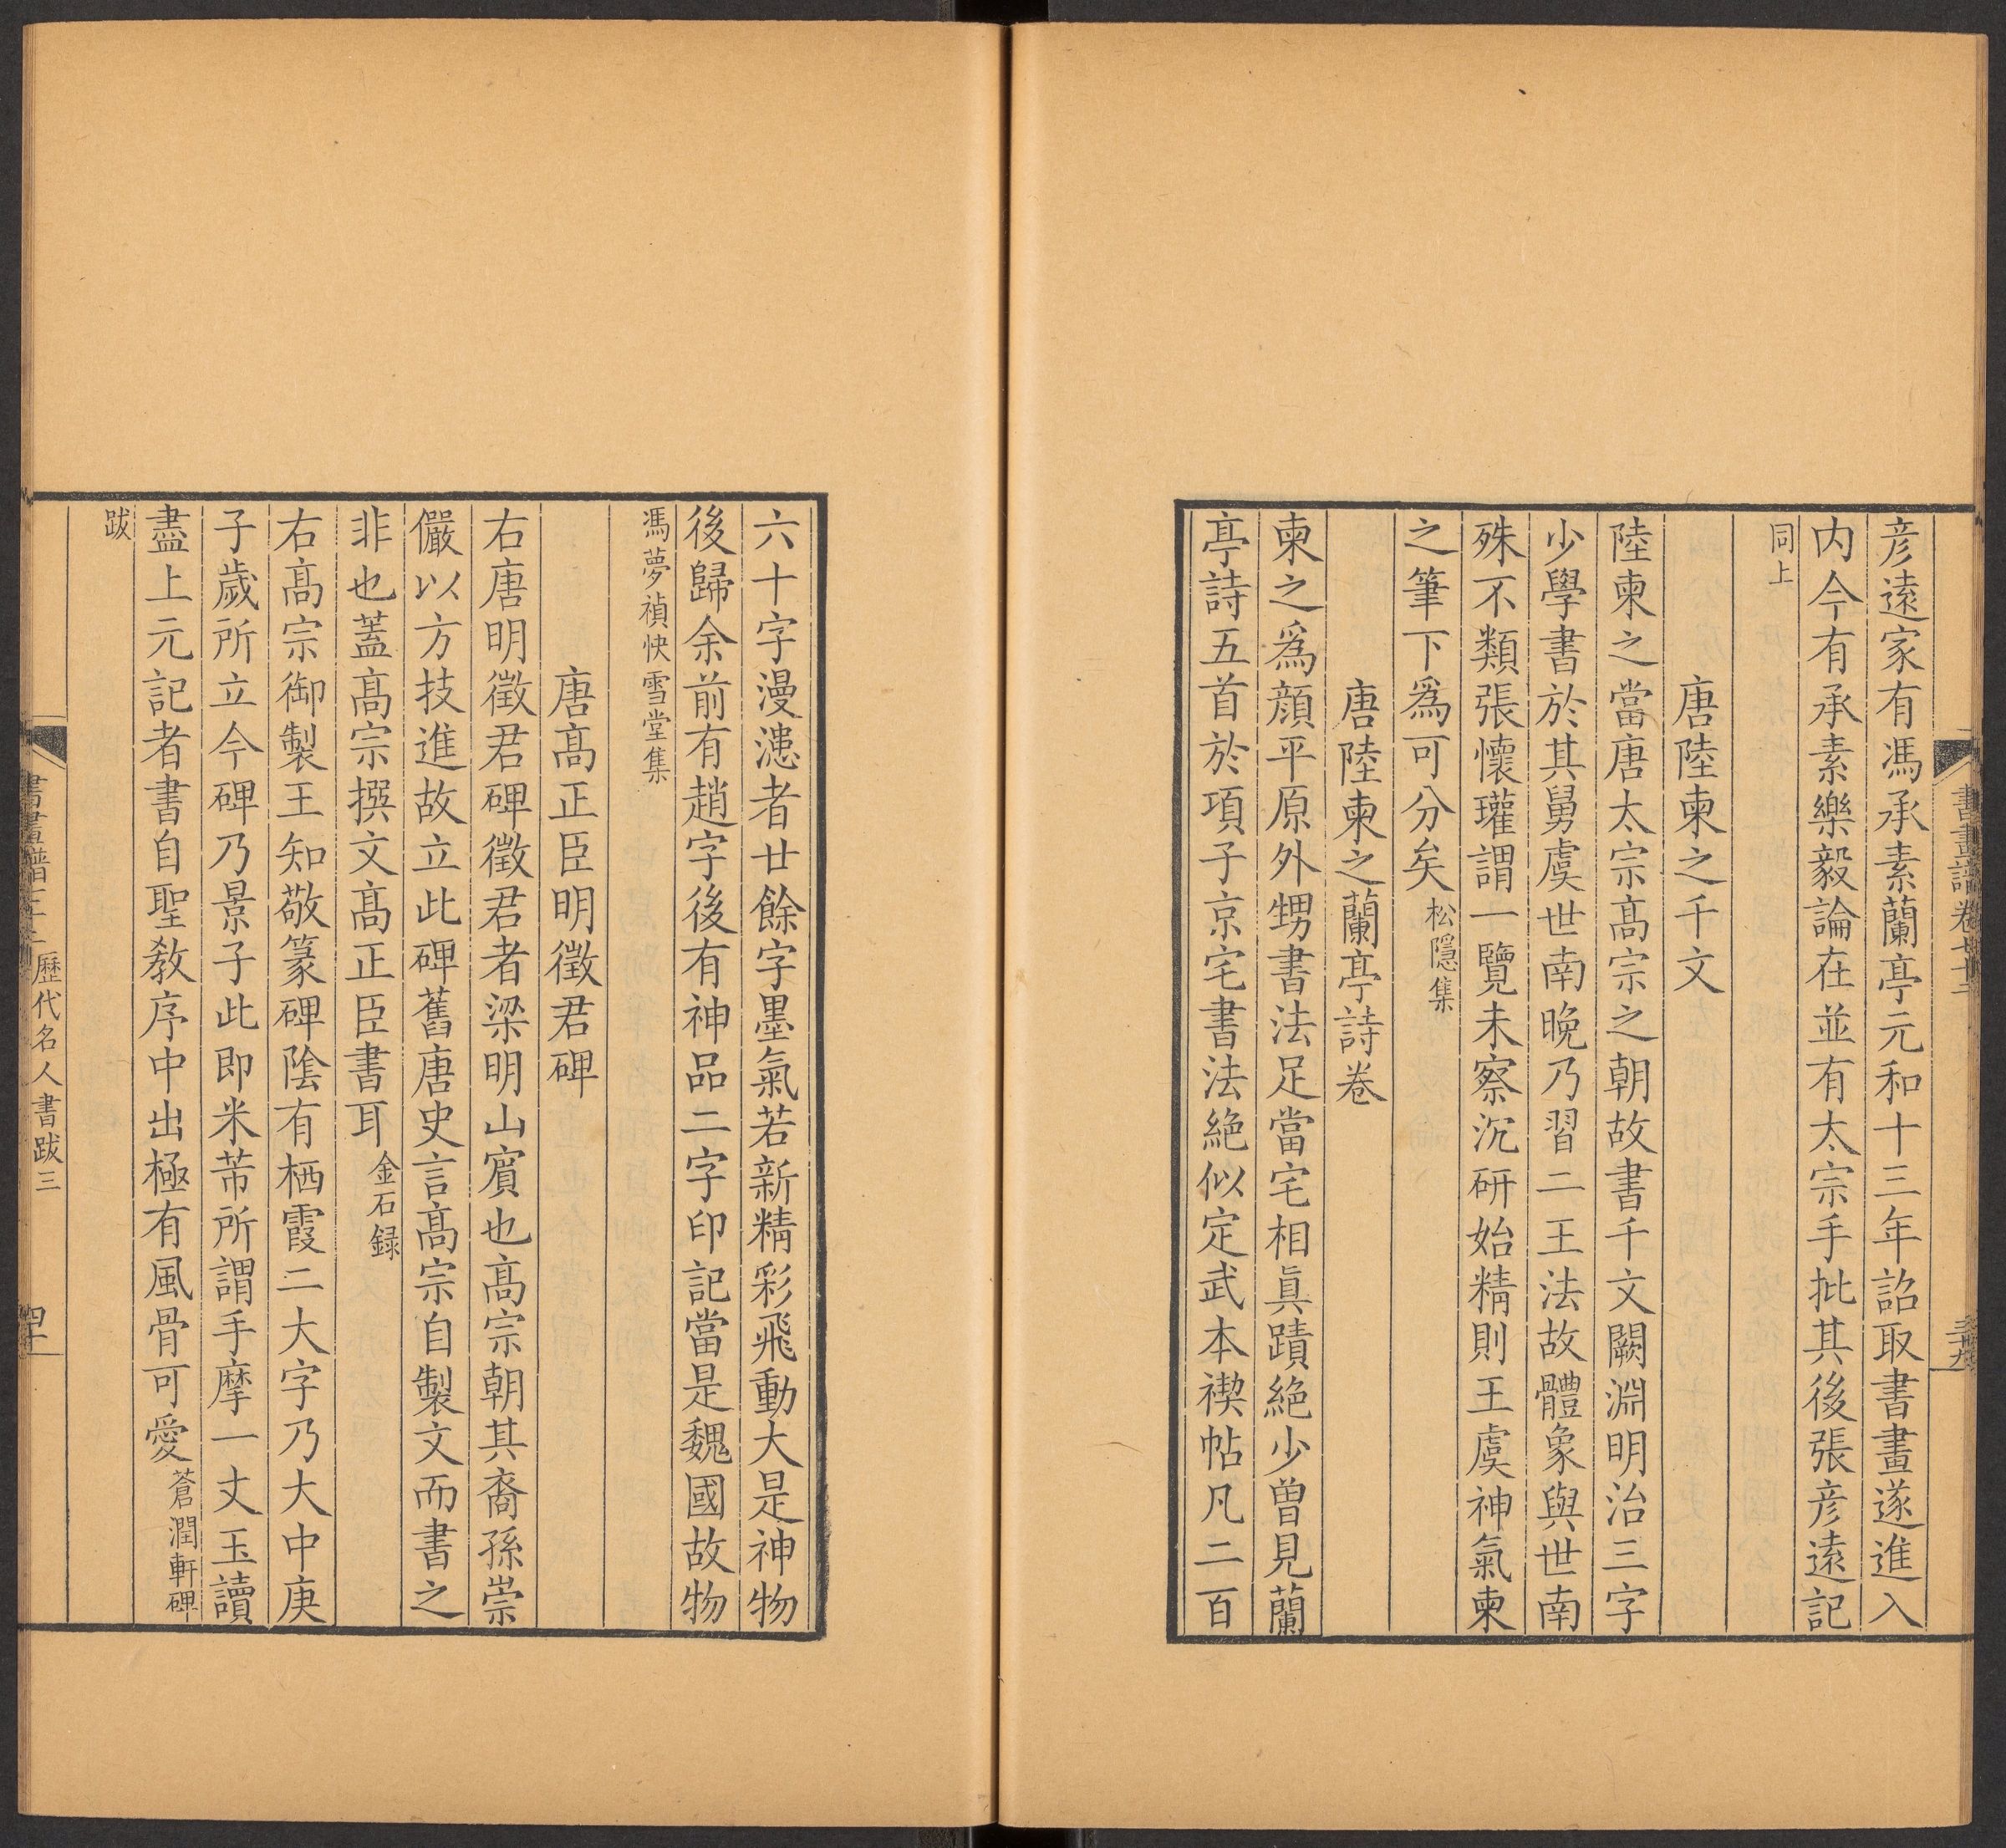 彦遠家有馮承素蘭亭元和十三年詔取書畫遂進入
内今有承素樂毅論在並有太宗手批其後張彦遠記
同上
唐陸柬之千文
陸柬之當唐太宗髙宗之朝故書千文闕淵明治三字
少學書於其舅虞世南晚乃習二王法故體象與世南
殊不類張懷瓘謂一覽未察沉研始精則王虞神氣柬
之筆下爲可分矣松隱集
唐陸柬之蘭亭詩卷
柬之爲顔平原外甥書法足當宅相眞蹟絶少曾見蘭
亭詩五首於項子京宅書法絶似定武本禊帖凡二百
六十字漫漶者廿餘字墨氣若新精彩飛動大是神物
後歸余前有趙字後有神品二字印記當是魏國故物
馮夢禎快雪堂集
唐髙正臣明徵君碑
右唐明徵君碑徵君者梁明山賓也髙宗朝其裔孫崇
儼以方技進故立此碑舊唐史言髙宗自製文而書之
非也蓋髙宗撰文髙正臣書耳金石録
右髙宗御製王知敬篆碑陰有栖霞二大字乃大中庚
子歲所立今碑乃景子此即米芾所謂手摩一丈玉讀
盡上元記者書自聖教序中出極有風骨可愛蒼潤軒碑
跋
歷代名人書跋三